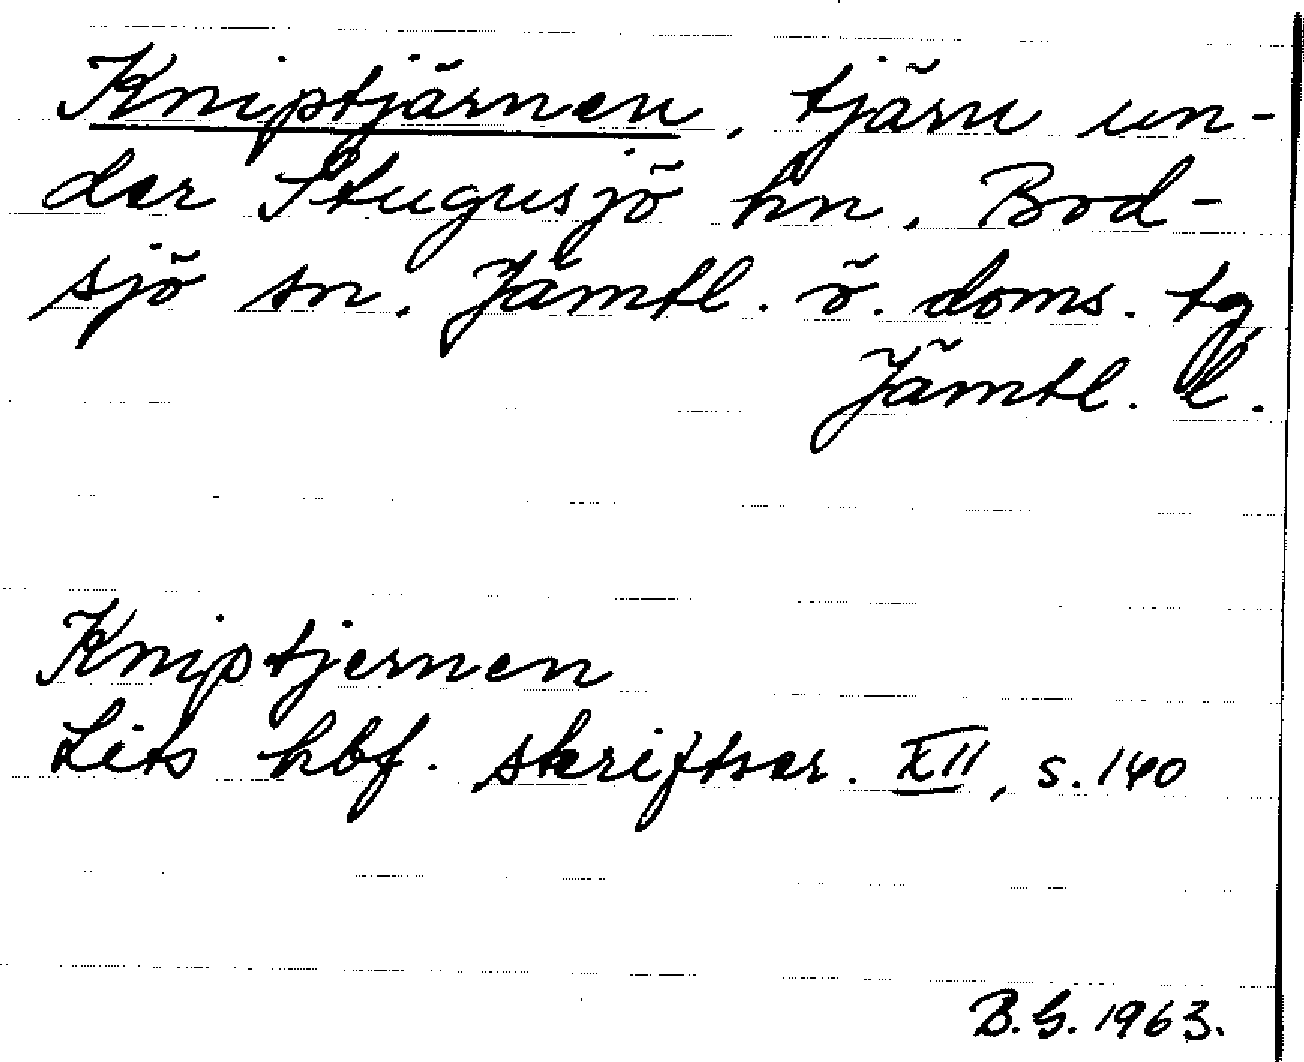 Kniptjärnen, tjärn un-
der Stugusjö hn, Bod-
sjö sn. Jämtl. ö. doms. tg,
Jämtl. l.
Kniptjernen
Lits hbf. skriftser. XII, s. 140
B.G. 1963.